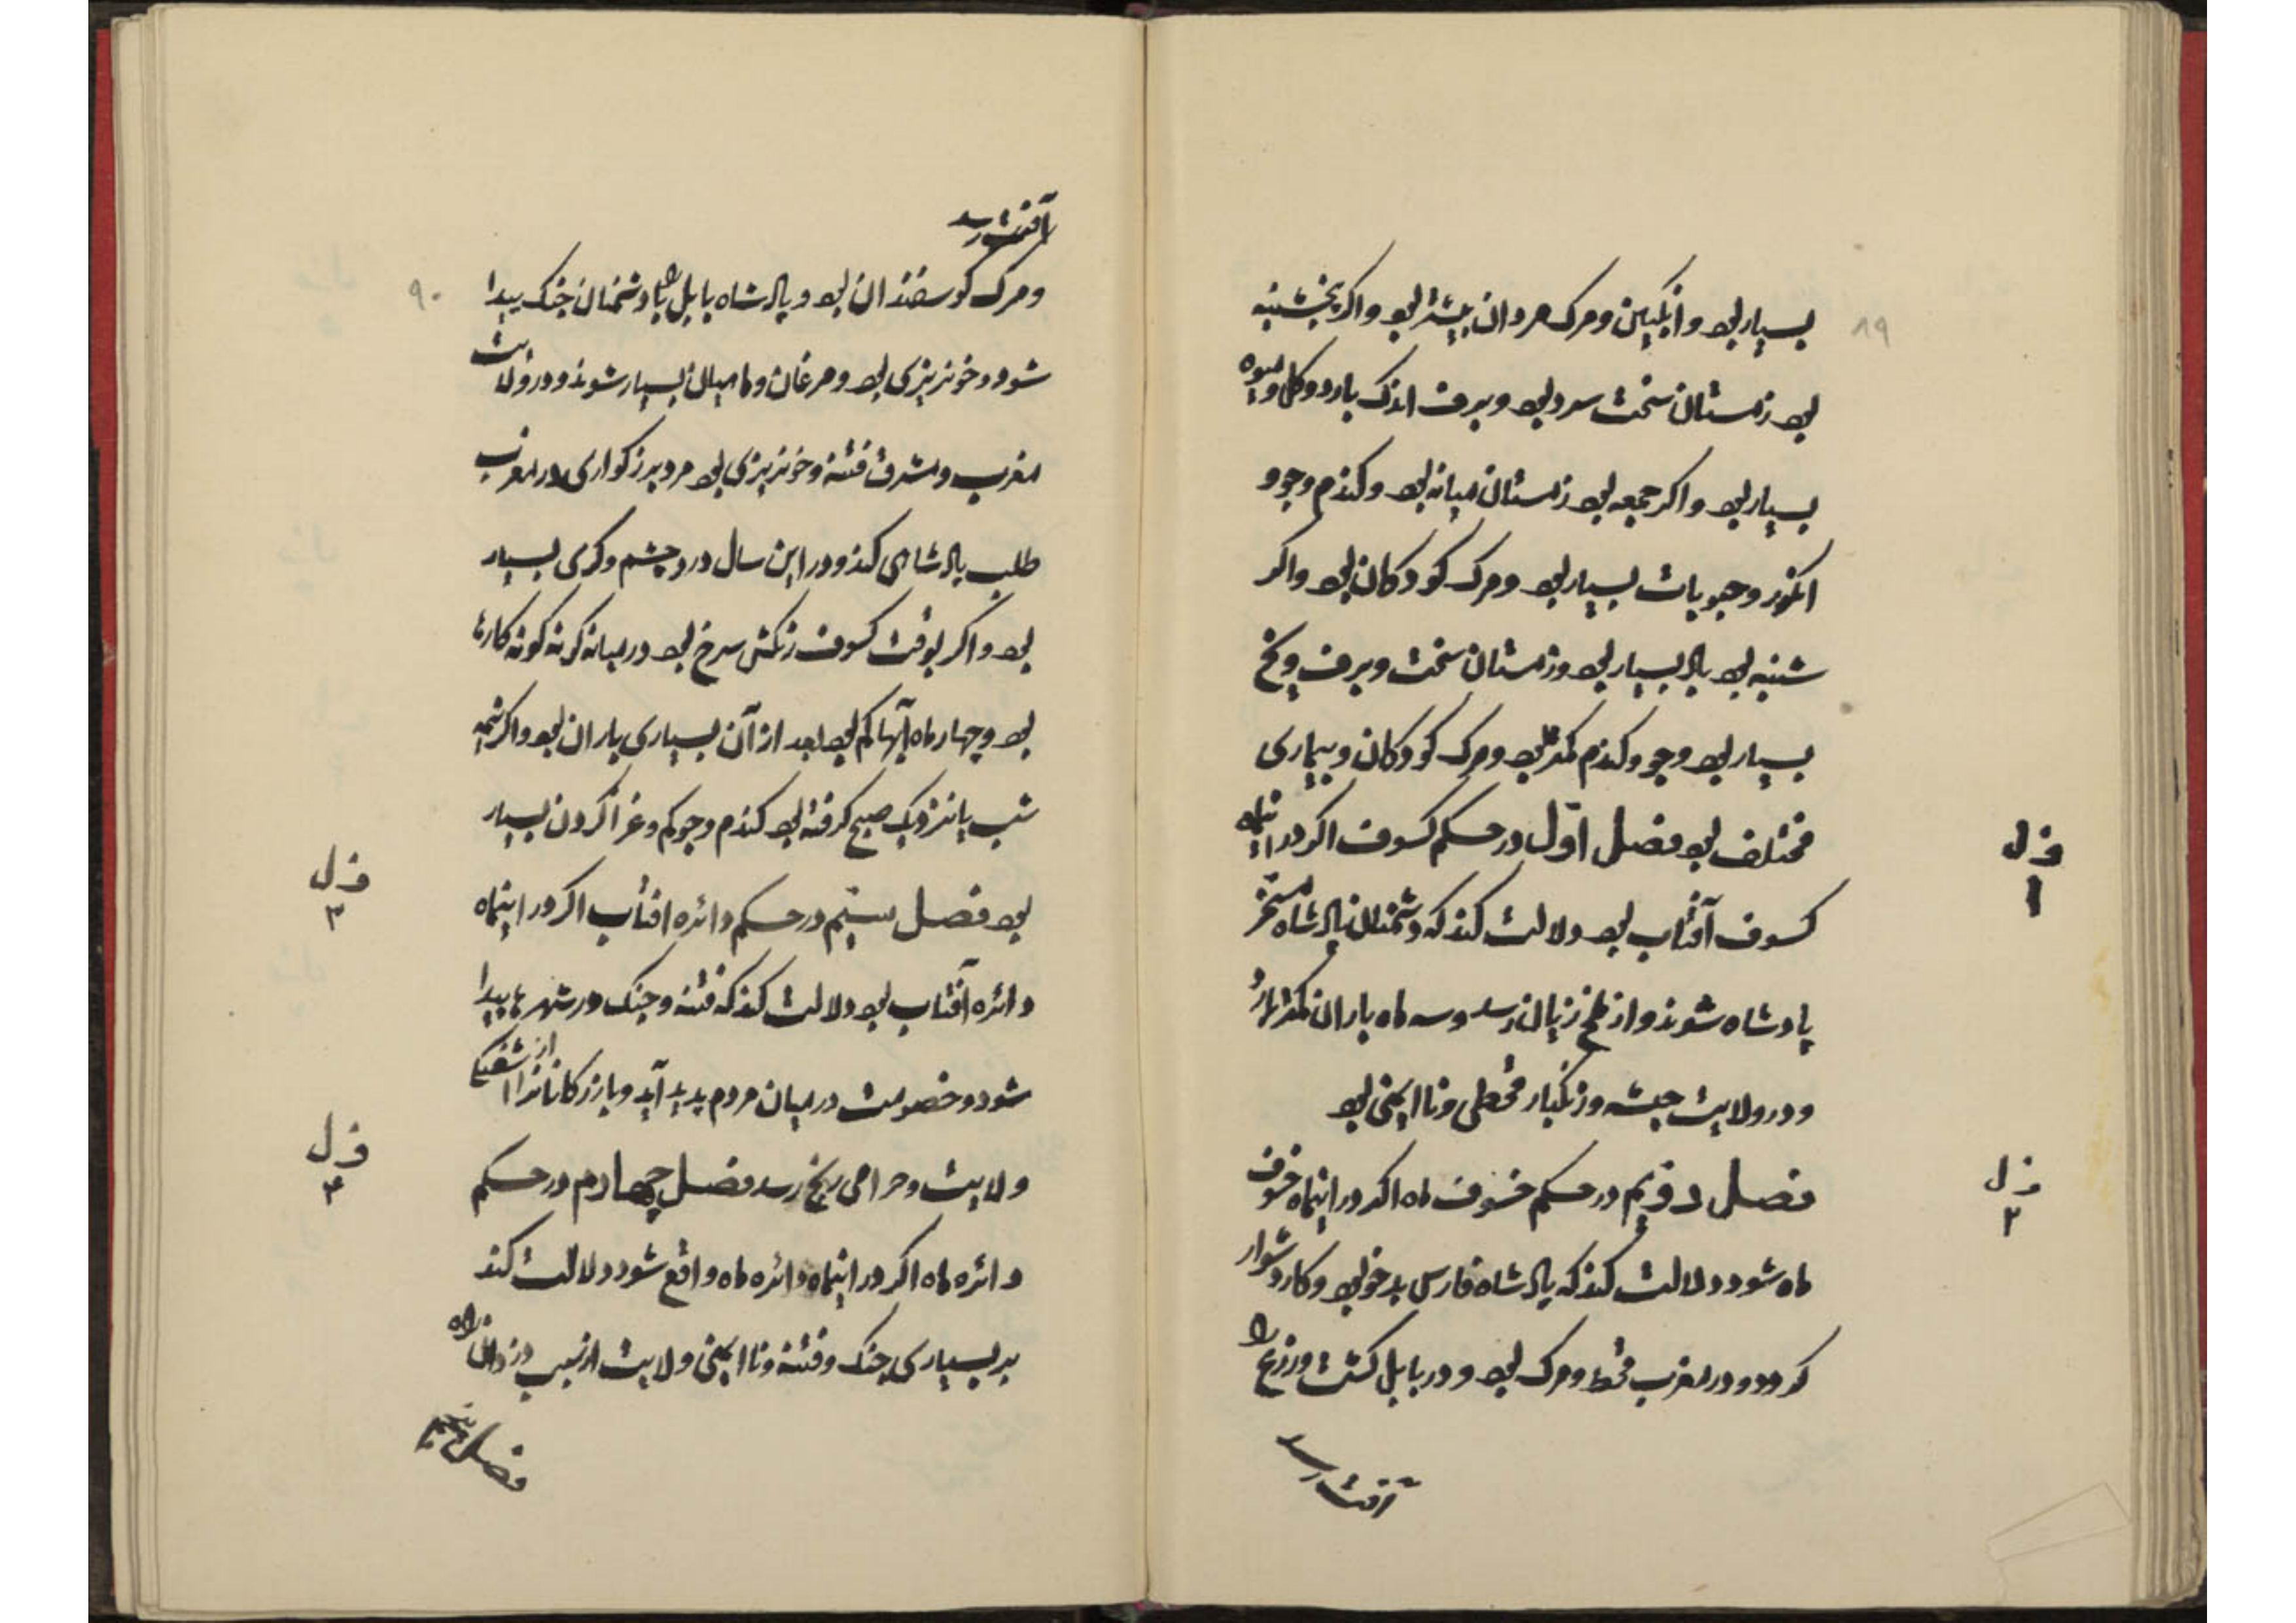 ۸۹
بسیار بود و انگبین و مرک مردان بیشتر بود و اکر پنجشنبه
بود زمستان سخت سرد بود و برف اندک بارد و کل و میوه
بسیار بود و اکر جمعه بود زمستان میانه بود و کندم و جو و
انکور و حبوبات بسیار بود و مرک کودکان بود و اکر
شنبه بود باد بسیار بود و زمستان سخت و برف و یخ
بسیار بود و جو و کندم کمتر بود و مرک کودکان و بیماری
مختلف بود فصل اول در حکم کسوف اکر در اینماه
فصل ۱
کسوف آفتاب بود دلالت کند که دشمنان پادشاه مسخر
پادشاه شوند و از ملخ زیان رسد و سه ماه باران کمتر بارد
و در ولایت حبشه و زنکبار قحطی و ناایمنی بود
فصل دویم در حکم خسوف ماه اکر در اینماه خسوف
فصل ۲
ماه شود دلالت کند که پادشاه فارس بدخو بود و کار دشوار
کردد و در مغرب قحط و مرک بود و در بابل کشت و زرع را
آفت رسد
۹۰
آفت رسد
و مرک کوسفندان بود و پادشاه بابل را با دشمنان جنک پیدا
شود و خونریزی بود و مرغان و ماهیان بسیار شوند و در ولایت
مغرب و مشرق فتنه و خونریزی بود مرد بزرکواری در مغرب
طلب پادشاهی کند و در این سال درد چشم و کری بسیار
بود و اکر بوقت کسوف رنکش سرخ بود در میانه کونه کونه کارها
بود و چهار ماه آبها کم بود بعد از آن بسیاری باران بود و اکر نیمه
شب یا نزدیک صبح کرفته بود کندم و جو کم و غزا کردن بسیار
بود فصل سیم در حکم دائره افتاب اکر در اینماه
فصل ۳
دائره آفتاب بود دلالت کند که فتنه و جنک در شهرها پیدا
شود و خصومت در میان مردم پدید آید و بازرکانانرا از
ولایت و حرامی رنج رسد فصل چهارم در حکم
فصل ۴
دائره ماه اکر در اینماه دائره ماه واقع شود دلالت کند
بر بسیاری جنک و فتنه و ناایمنی ولایت از سبب دزدان راه
فصل پنجم